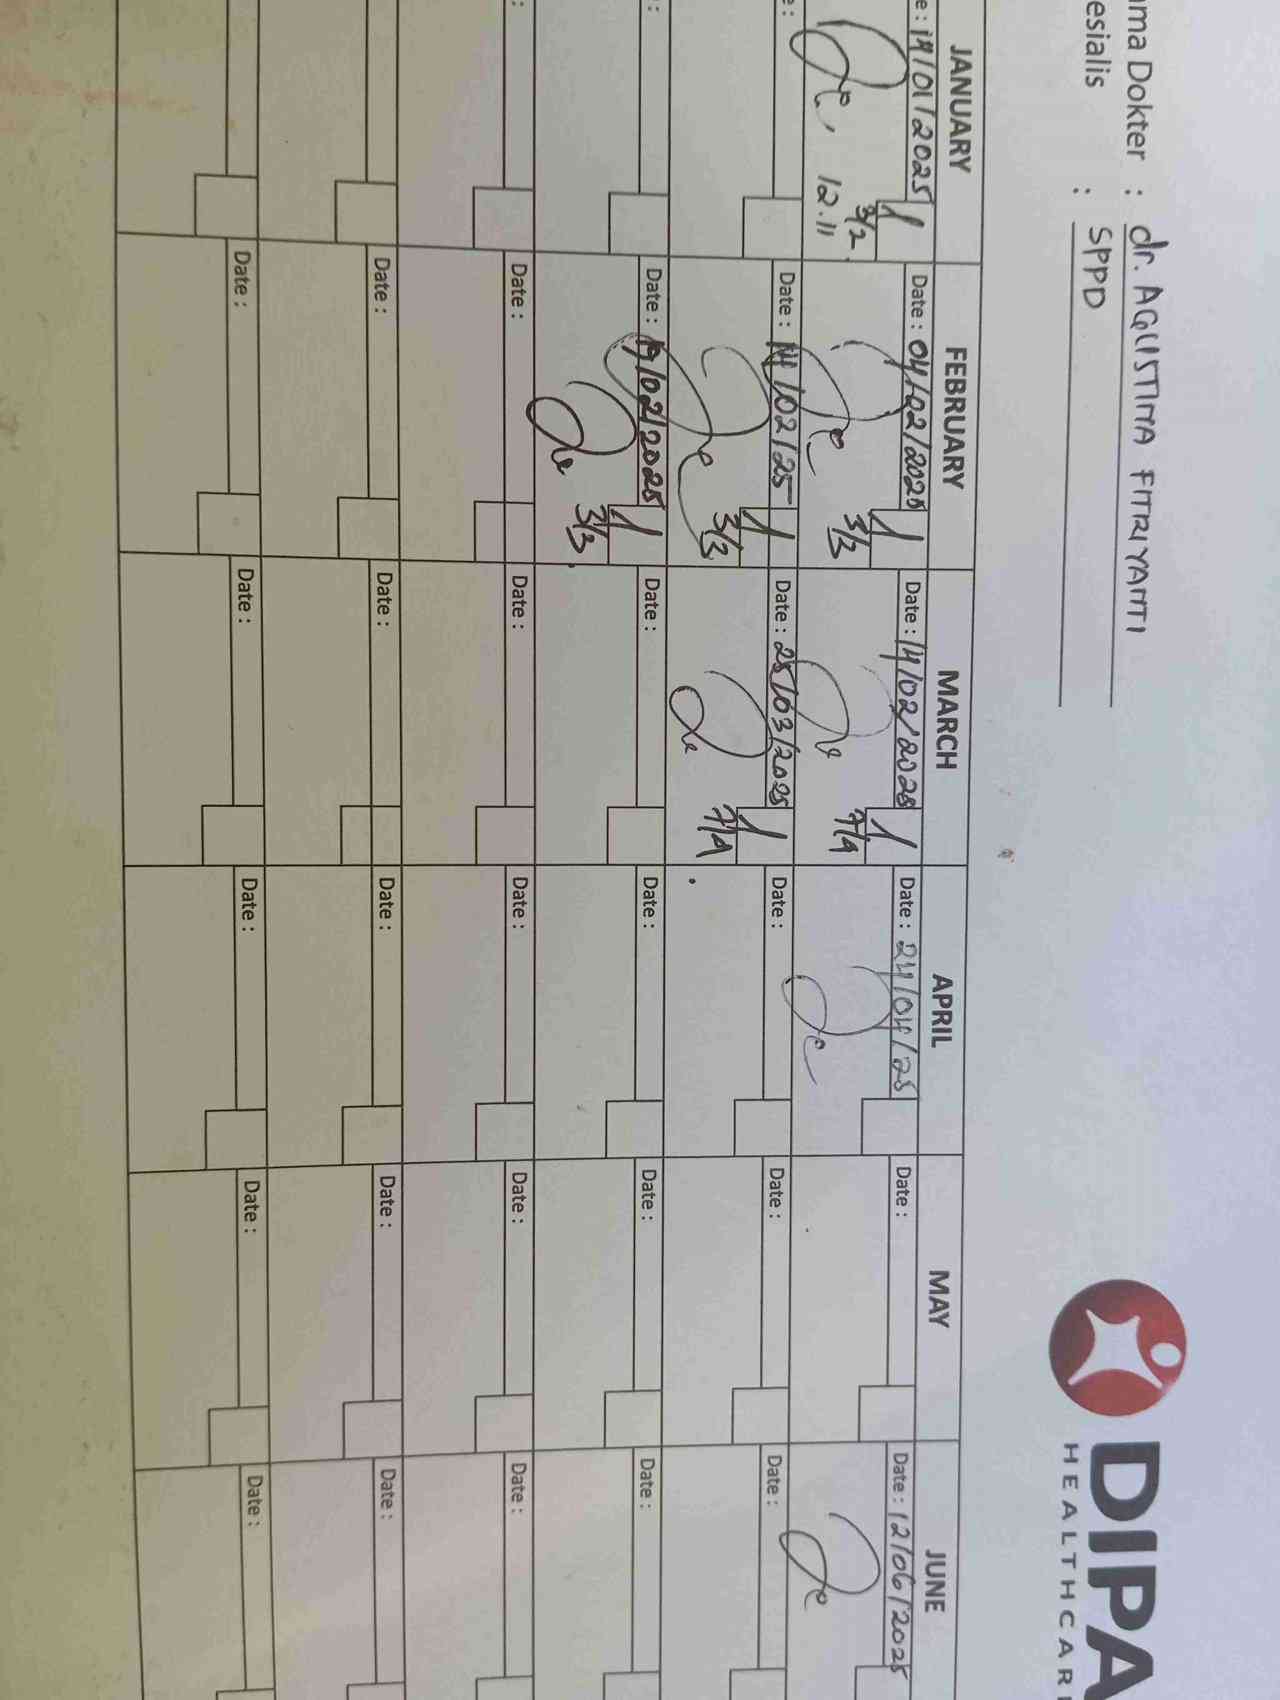 ma Dokter : dr. AGUSTINA FITRIYANTI
esialis : SPPD
DIPA
HEALTHCAR
JANUARY FEBRUARY MARCH APRIL MAY JUNE
e: 14/01/2025 1 Date: 04/02/2025 1 Date: 14/02/2025 1 Date: 24/04/25 Date: Date: 12/06/2025
3/2 3/3 7/4
12.11
e: Date: 14/02/25 1 Date: 25/03/2025 1 Date: Date: Date:
3/3 7/4
: Date: 19/02/2025 1 Date: Date: Date: Date:
3/3
: Date: Date: Date: Date: Date:
Date: Date: Date: Date: Date:
Date: Date: Date: Date: Date: